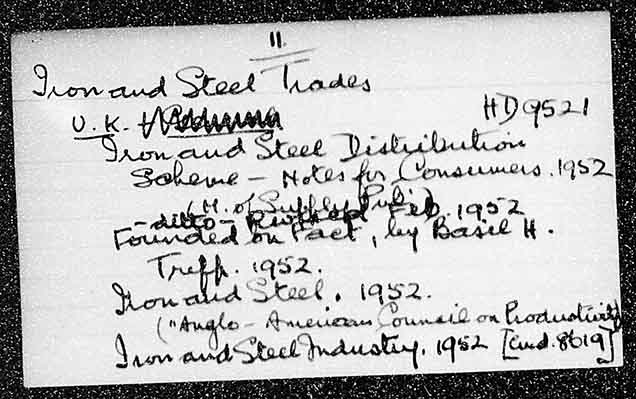 11.
Iron and Steel Trades
U.K. HD9521
Iron and Steel Distribution
Scheme - Notes for Consumers. 1952
(M. of Supply Pub.)
- ditto - Revised Feb. 1952
Founded on Fact, by Basil H.
Tripp. 1952.
Iron and Steel. 1952.
("Anglo-American Council on Productivity
Iron and Steel Industry. 1952 [Cmd. 8619]